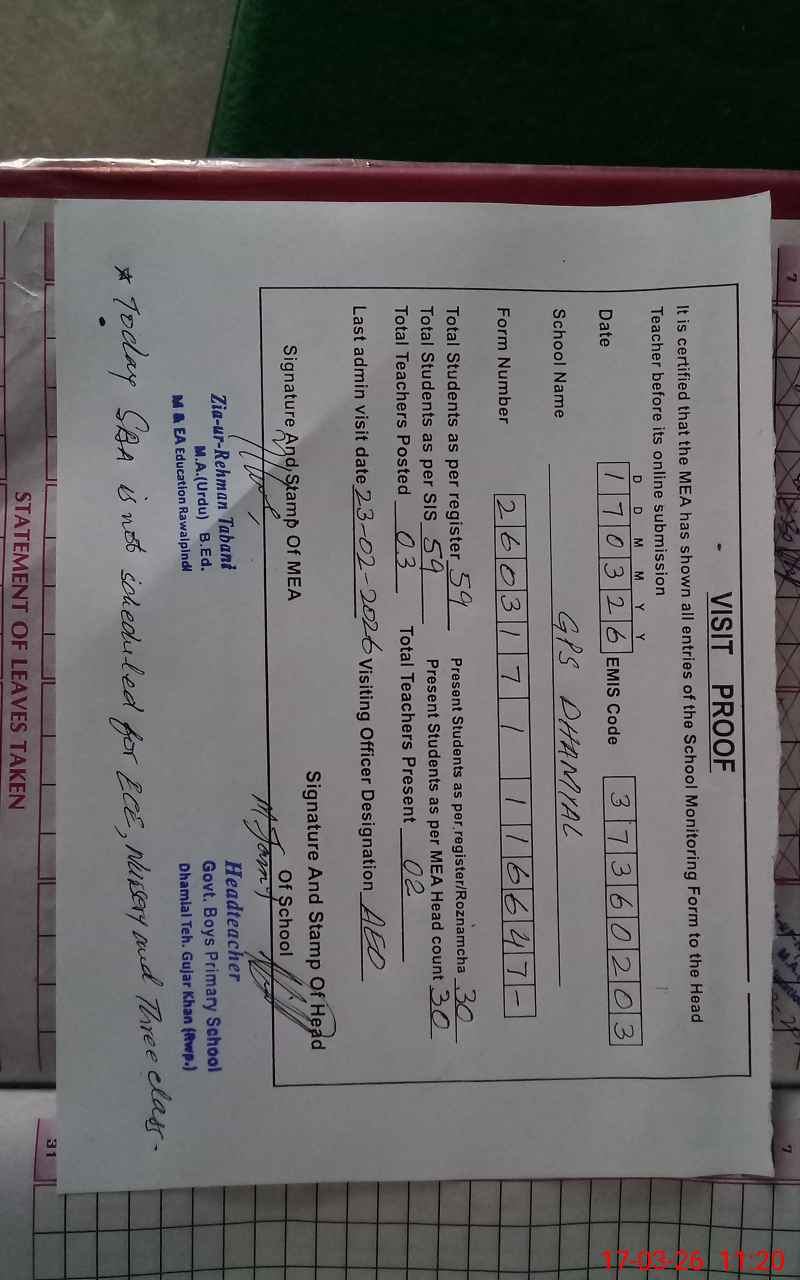 VISIT PROOF
It is certified that the MEA has shown all entries of the School Monitoring Form to the Head
Teacher before its online submission
D D M M Y Y
Date 170326 EMIS Code 37360203
School Name GPS DHAMYAL
Form Number 26031711 16647-
Total Students as per register 59 Present Students as per register/Roznamcha 30
Total Students as per SIS 59 Present Students as per MEA Head count 30
Total Teachers Posted 03 Total Teachers Present 02
Last admin visit date 23-02-2026 Visiting Officer Designation AEO
Signature And Stamp Of MEA
Signature And Stamp Of Head
Of School
Zia-ur-Rehman Tabani
M.A.(Urdu) B.Ed.
M & EA Education Rawalpindi
Headteacher
Govt. Boys Primary School
Dhamial Teh. Gujar Khan (Rwp.)
* Today SBA is not scheduled for ECE, Nursery and Three class.
STATEMENT OF LEAVES TAKEN
7
7
31
17-03-26 11:20